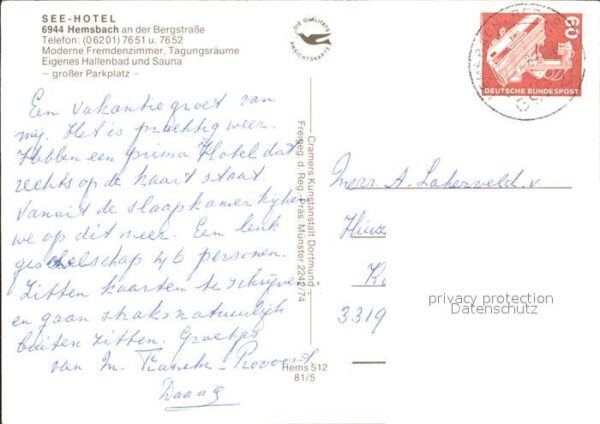 SEE-HOTEL
6944 Hemsbach an der Bergstraße
Telefon: (06201) 7651 u. 7652
Moderne Fremdenzimmer, Tagungsräume
Eigenes Hallenbad und Sauna
– großer Parkplatz –
DIE QUALITÄTS
ANSICHTSKARTE
60
DEUTSCHE BUNDESPOST
Een vakantie groet van
mij. Het is prachtig weer.
Hebben een prima Hotel dat
rechts op de kaart staat
Vanuit de slaapkamer kijken
we op dit meer. Een leuk
gezelschap 46 personen.
Zitten kaarten te schrijven
en gaan straks natuurlijk
buiten zitten. Groetjes
van M.
Daaag
Cramers Kunstanstalt Dortmund
Freigeg. d. Reg.-Präs. Münster 2242/74
Hems 512
81/5
Merr A. v
3319
privacy protection
Datenschutz